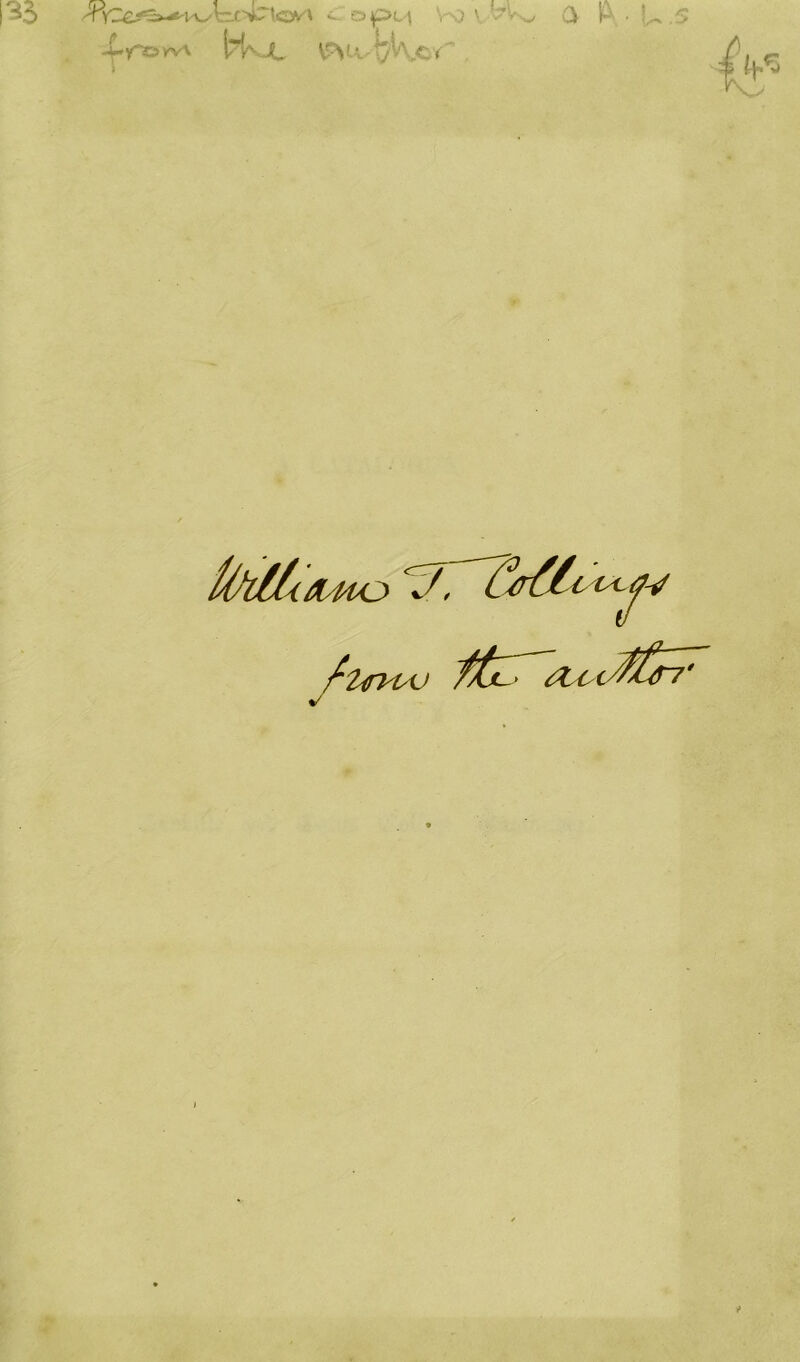 133 Presentation copy with a A.L.S £45
from the author
William T. Collings
from the author